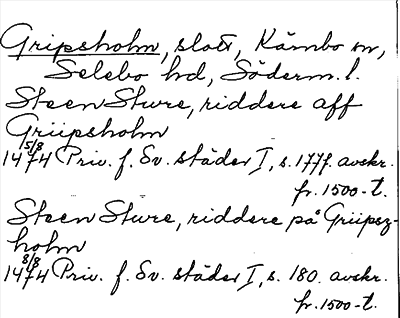 Gripsholm, slott, Kärnbo sn,
Selebo hd, Söderm. l.
Steen Sture, riddere aff
Griipsholm
5/8
1474 Priv. f. Sv. städer I, s. 177f. avskr.
fr. 1500-t.
Steen Sture, riddere på Griipsz-
holm
8/8
1474 Priv. f. Sv. städer I, s. 180. avskr.
fr. 1500-t.